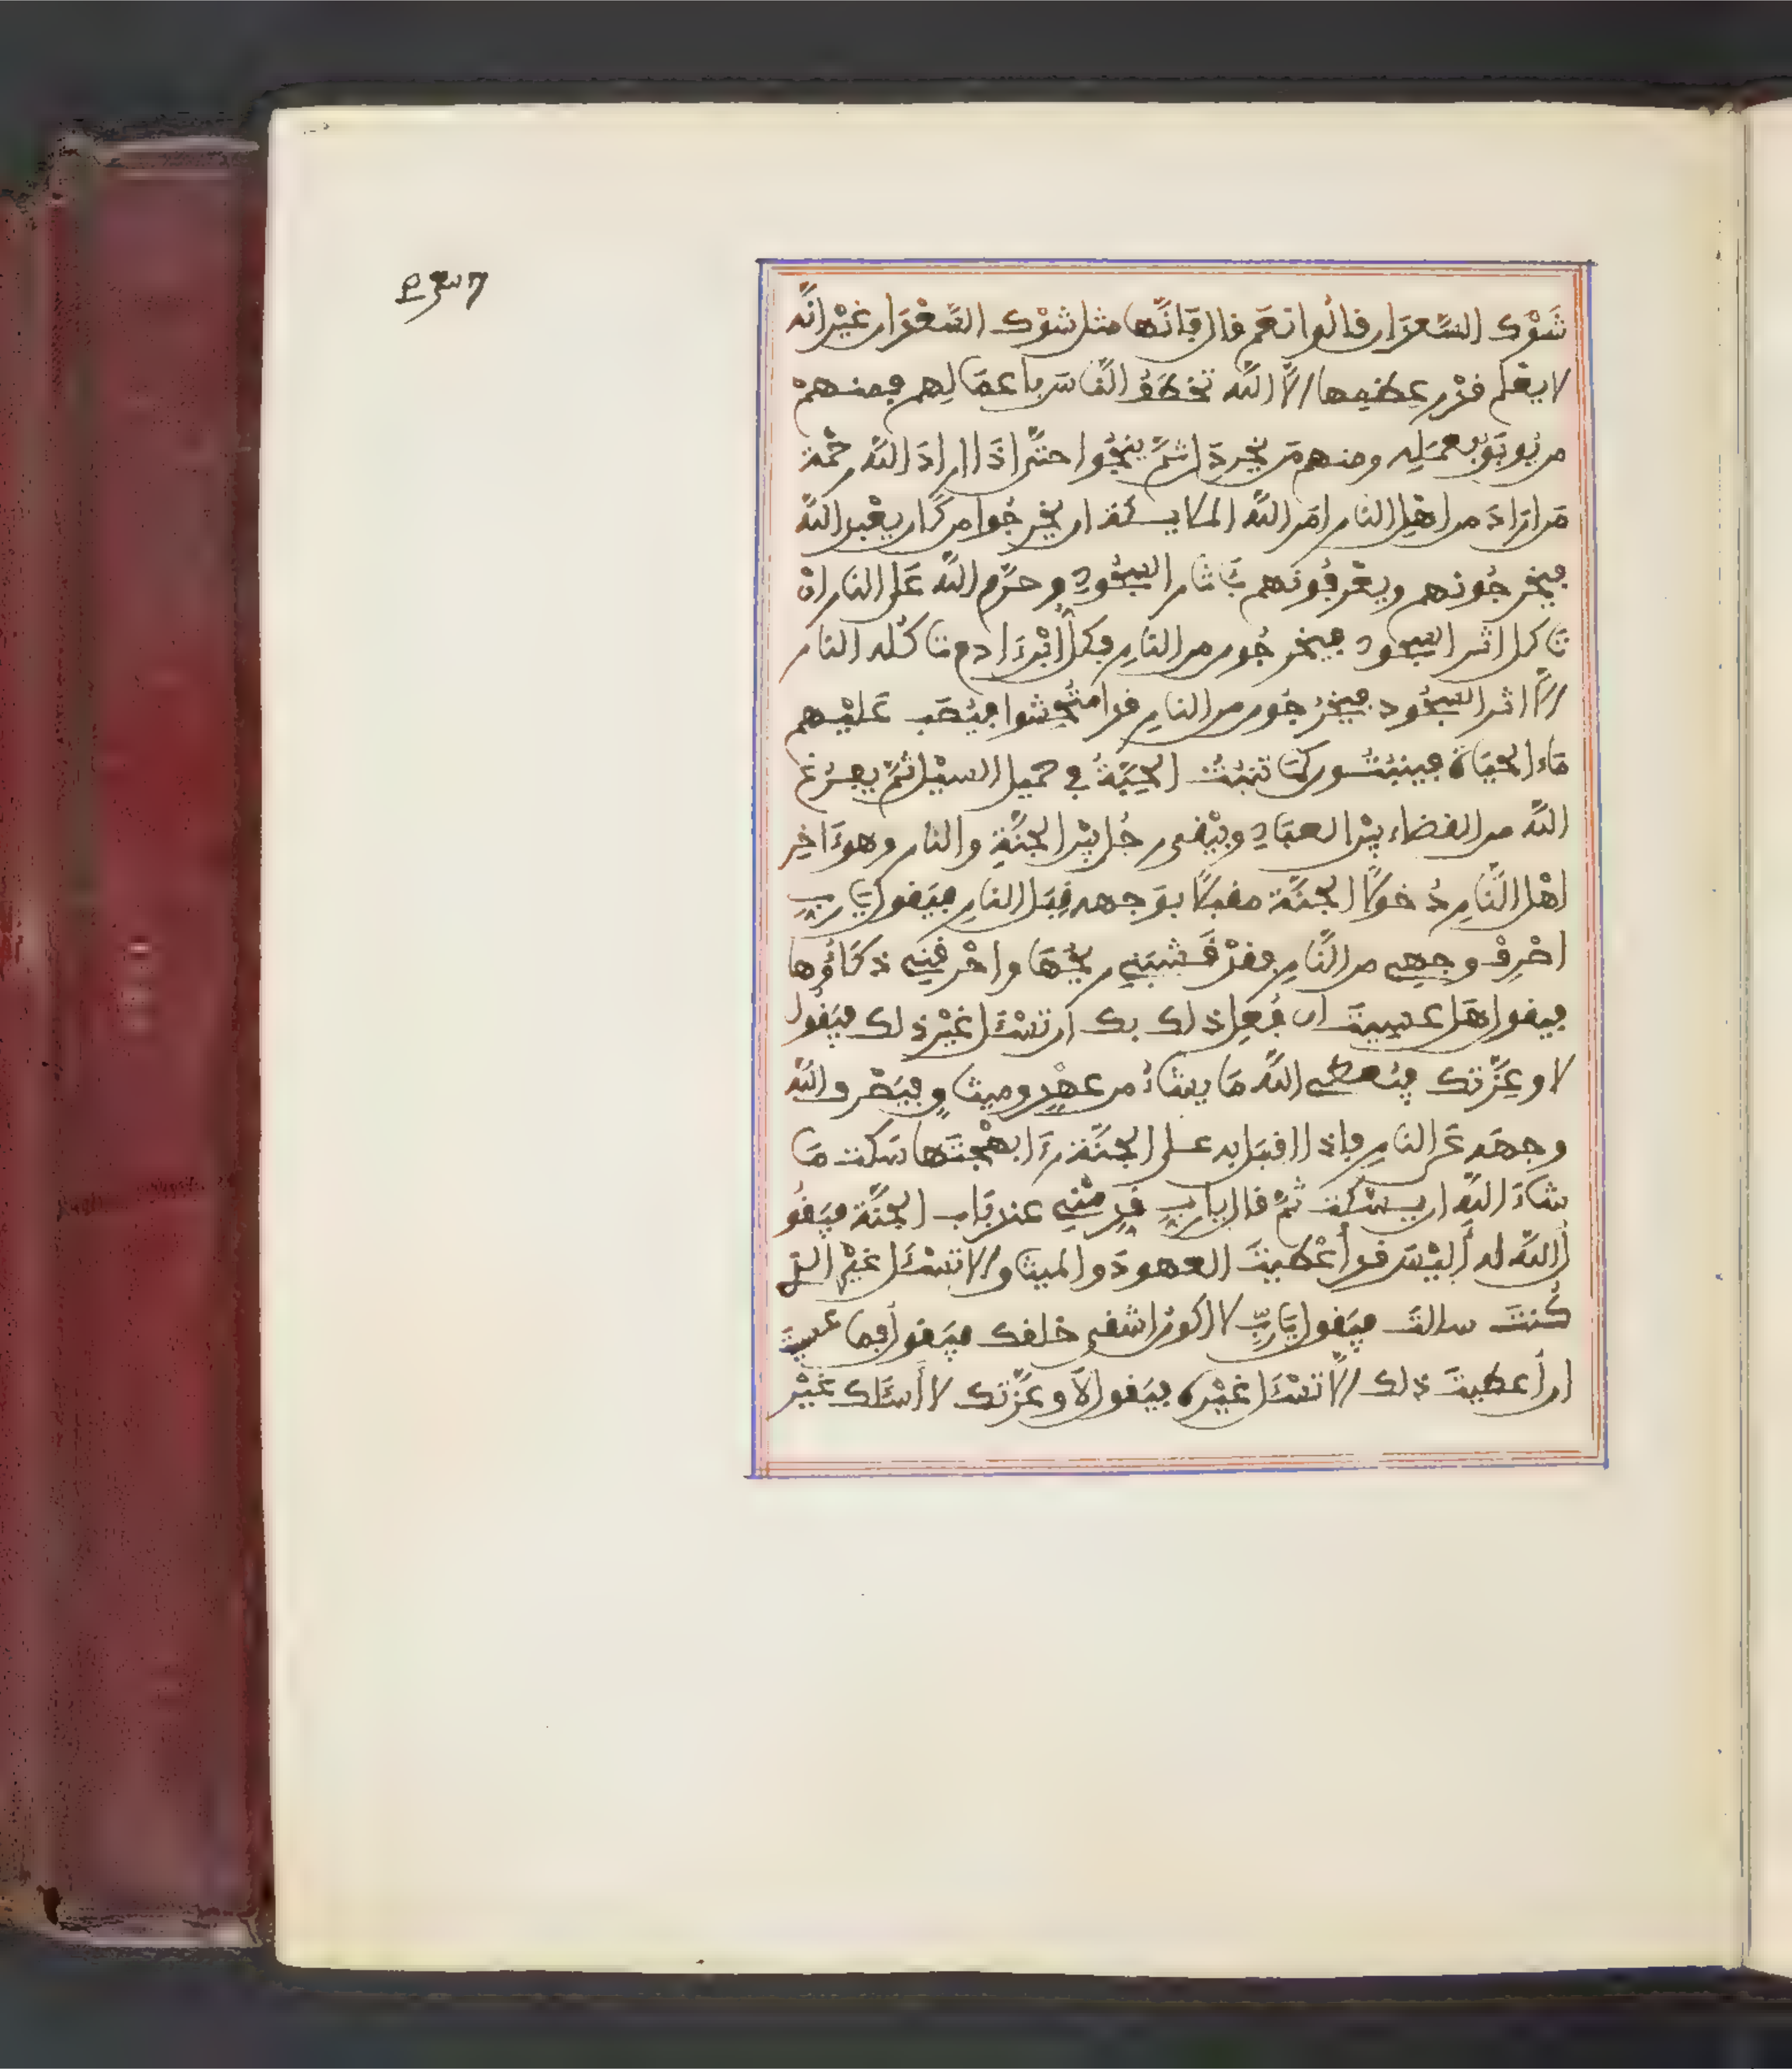 شَوْك السَّعدَان قالُوا نعَم قال فَانَّها مثل شوْك السَّعْدَان غيْر انَّه
لا يعْلم قدْر عِظمِها الاَّ اللَّه تخطَفُ النَّاسَ باعمَالِهم فمنهمْ
من يُوبَقُ بعمَلِه ومنهم مَن يُخرْدَل ثمَّ ينجُوا حتَّى اذَا اراد اللَّه رحْمة
مَن ارَادَ من اهْلِ النار امَر اللَّه الملايكة ان يخرجُوا من كَان يعْبد اللَّه
فيخرجُونهم ويعْرفُونهم بَئاثار السجُودِ وحرَّم اللَّه عَلى النار انْ
تَاكل اثر السجود فيخرجُون من النارِ فكلُّ ابْن ءَادم تاكُله النار
الاَّ اثر السجُود فيخرُجُون من النارِ قد امتُحِشوا فيُصَب عَليْهم
مَاء الحيَاة فينبتُون كمَا تنبُتُ الحِبَّةُ في حَميل السيْل ثمَّ يفرُغ
اللَّه من القضاء بيْن العبَادِ ويبْقى رجُل بيْن الجنَّةِ والنار وهو ءَاخِر
اهْل النَّارِ دُخولاً الجنَّة مقبلاً بوَجهه قِبَل النارِ فيَقول يَا ربِّ
اصْرِفْ وجهِي من النَّارِ فقدْ قَشبَنِي رِيحُهَا واحْرقنِي ذكَاؤُها
فيقول هَل عسيتَ ان فُعِل ذلك بك ان تسْئَل غيْر ذلك فيَقُول
لا وعِزَّتك فيُعطِي اللَّه مَا يشاءُ من عهْدٍ وميثاقٍ فيَصْرف اللَّه
وجهَه عَن النارِ فاذا اقبَل به على الجنَّة رءَا بهْجتَهَا سَكت مَا
شاءَ اللَّه ان يسْكت ثمَّ قال يا ربِّ قدِّمْنِي عند بَاب الجنَّة فيَقُو
لُ اللَّه له أليْسَ قد أعْطيتَ العهودَ والميثاق الا تسْئَل غيْر الذِي
كُنتَ سالتَ فيَقول يَا ربِّ لا اكونُ اشقى خلقك فيَقول فما عسيتَ
ان أعطيتَ ذلك الاَّ تسْئَل غيْره فيَقول لاَ وعزَّتك لا أسئَلك غيْر